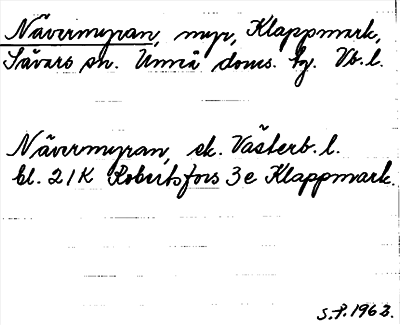 Nävermyran, myr, Klappmark,
Sävars sn. Umeå doms. tg. Vb. l.
Nävermyran, ek. Västerb. l.
bl. 21K Robertsfors 3e Klappmark.
S.P. 1963.